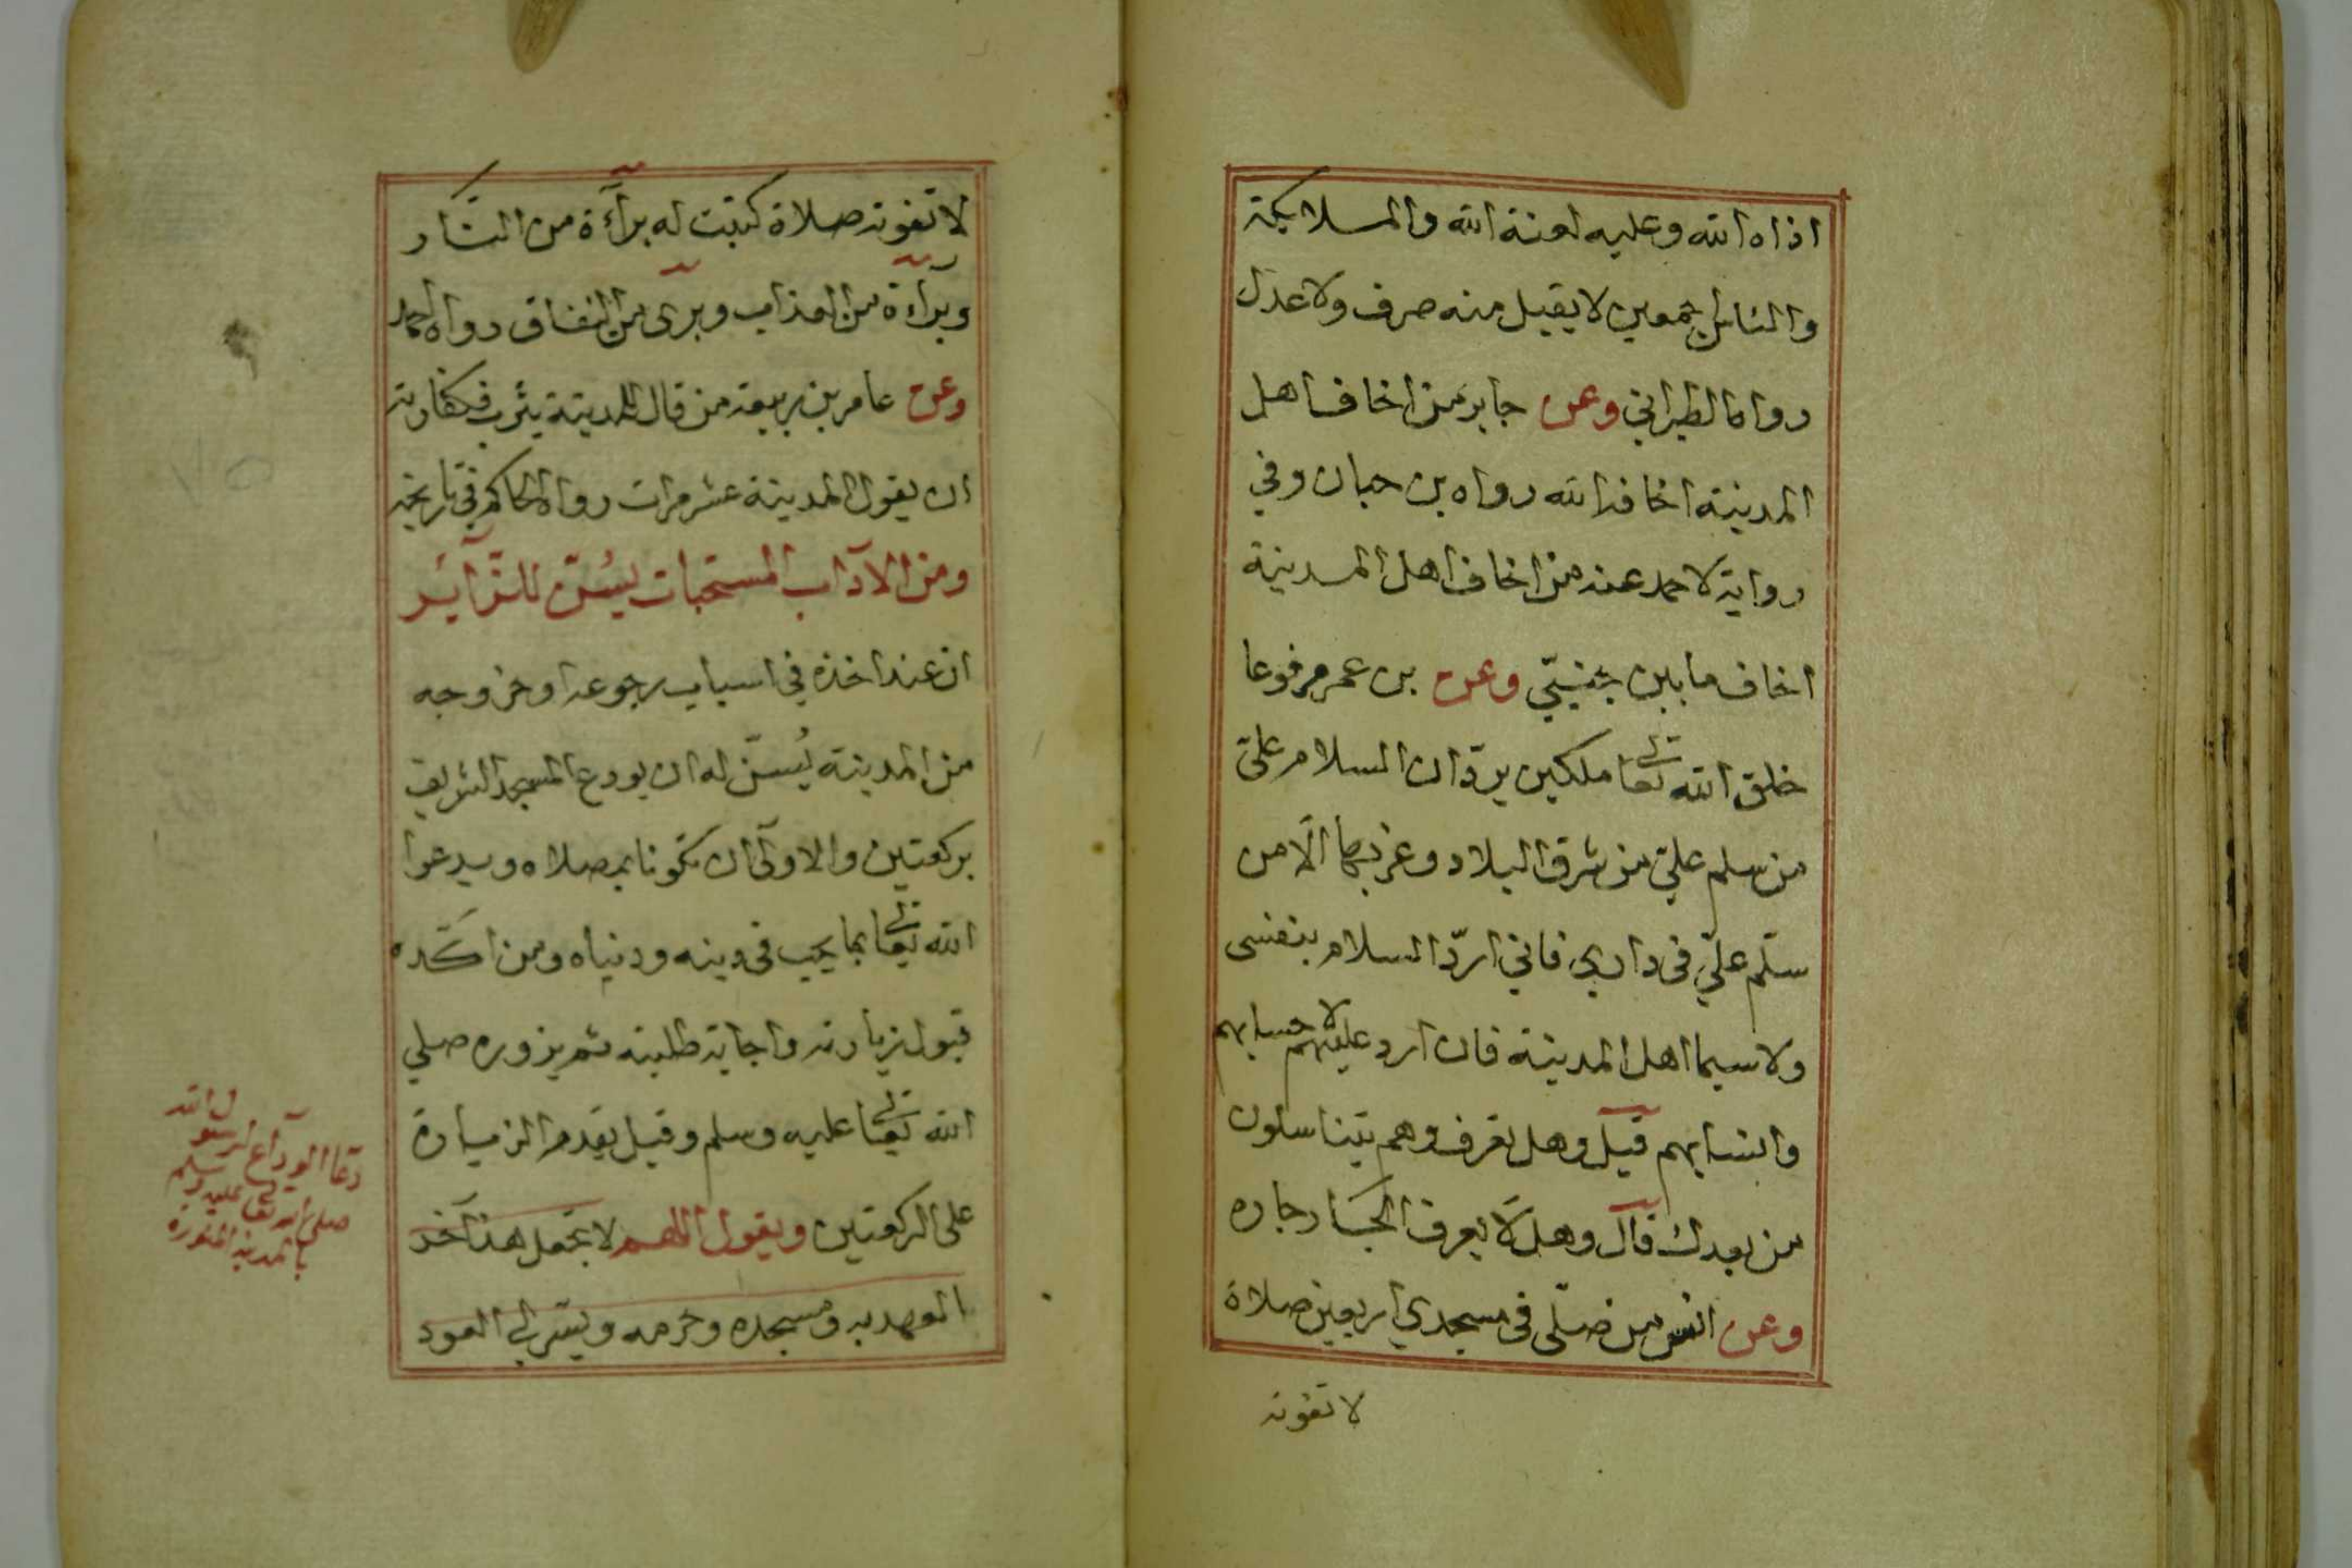 اذاه الله وعليه لعنة الله والملايكة
والناس اجمعين لا يقبل منه صرف ولا عدل
رواه الطبراني وعن جابر من اخاف اهل
المدينة اخافه الله رواه بن حبان وفي
رواية لاحمد عنه من اخاف اهل المدينة
اخاف ما بين جنبيّ وعن بن عمر مرفوعا
خلق الله تعالى ملكين يردّان السلام على
من سلم عليّ من شرق البلاد وغربها الّا من
سلّم عليّ في داري فاني اردّ السلام بنفسي
ولا سيما اهل المدينة فان ارد عليهم لاحسابهم
وانسابهم قيل وهل تعرفهم وهم يتناسلون
من بعدك قال وهل لا يعرف الجار جاره
وعن انس من صلّى في مسجدي اربعين صلاة
لا تفوته
لا تفوته صلاة كتبت له براءة من النار
وبراءة من العذاب وبرى من النفاق رواه احمد
وعن عامر بن ربيعة من قال للمدينة يثرب فكفارته
ان يقول المدينة عشر مرات رواه الحاكم في تاريخه
ومن الآداب المستحبات يسنّ للزّاير
ان عند اخذه في اسباب رجوعه او خروجه
من المدينة يُسنّ له ان يودع المسجد الشريف
بركعتين والاولى ان تكونا بمصلاه ويدعوا
الله تعالى بما يحب في دينه ودنياه ومن اكّده
قبول زيارته واجابة طلبته ثم يزوره صلي
الله تعالى عليه وسلم وقيل يقدم الزيارة
على الركعتين ويقول اللهم لا تجعل هذا آخر
العهد به ومسجده وحرمه ويسّر لي العود
دعا الوداع لرسول الله
صلى الله تعالى عليه وسلم
بالمدينة المنورة